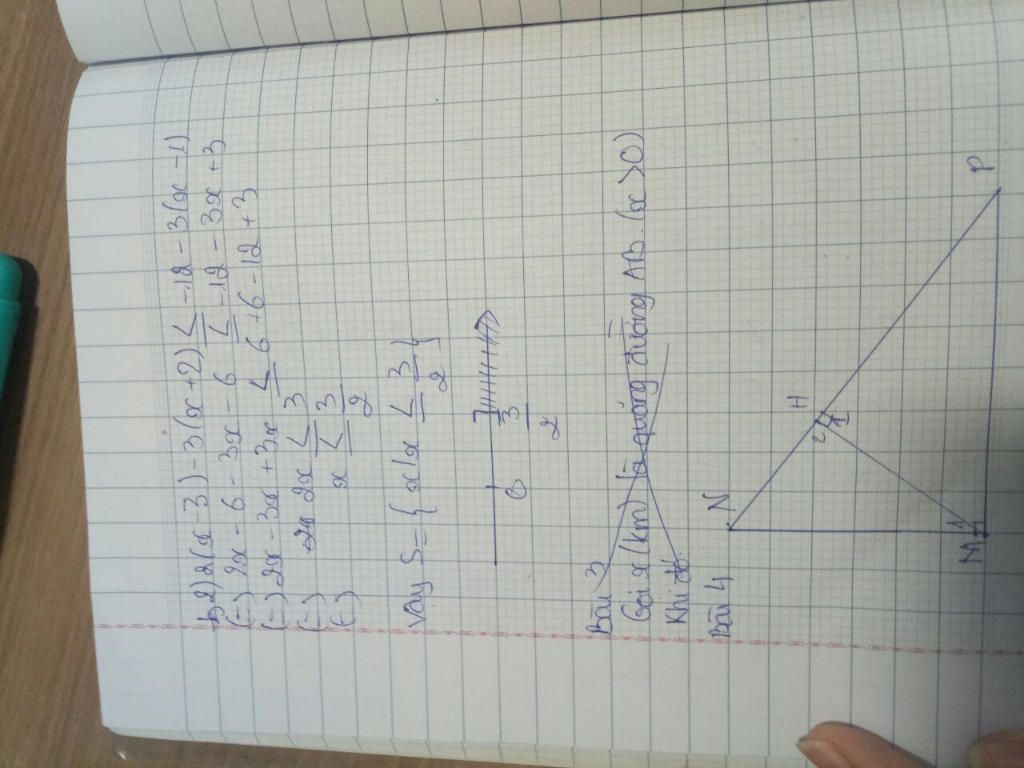 b2) 2(x-3) - 3(x+2) ≤ -12 - 3(x-1)
(=) 2x - 6 - 3x - 6 ≤ -12 - 3x + 3
(=) 2x - 3x + 3x ≤ 6 + 6 - 12 + 3
(=) 2x ≤ 3
(=) x ≤ 3/2
Vậy S = { x | x ≤ 3/2 }
0 3/2
Bài 3
Gọi x (km) là quãng đường AB. (x > 0)
Khi đó
Bài 4
N
H
2 1
P
1
M